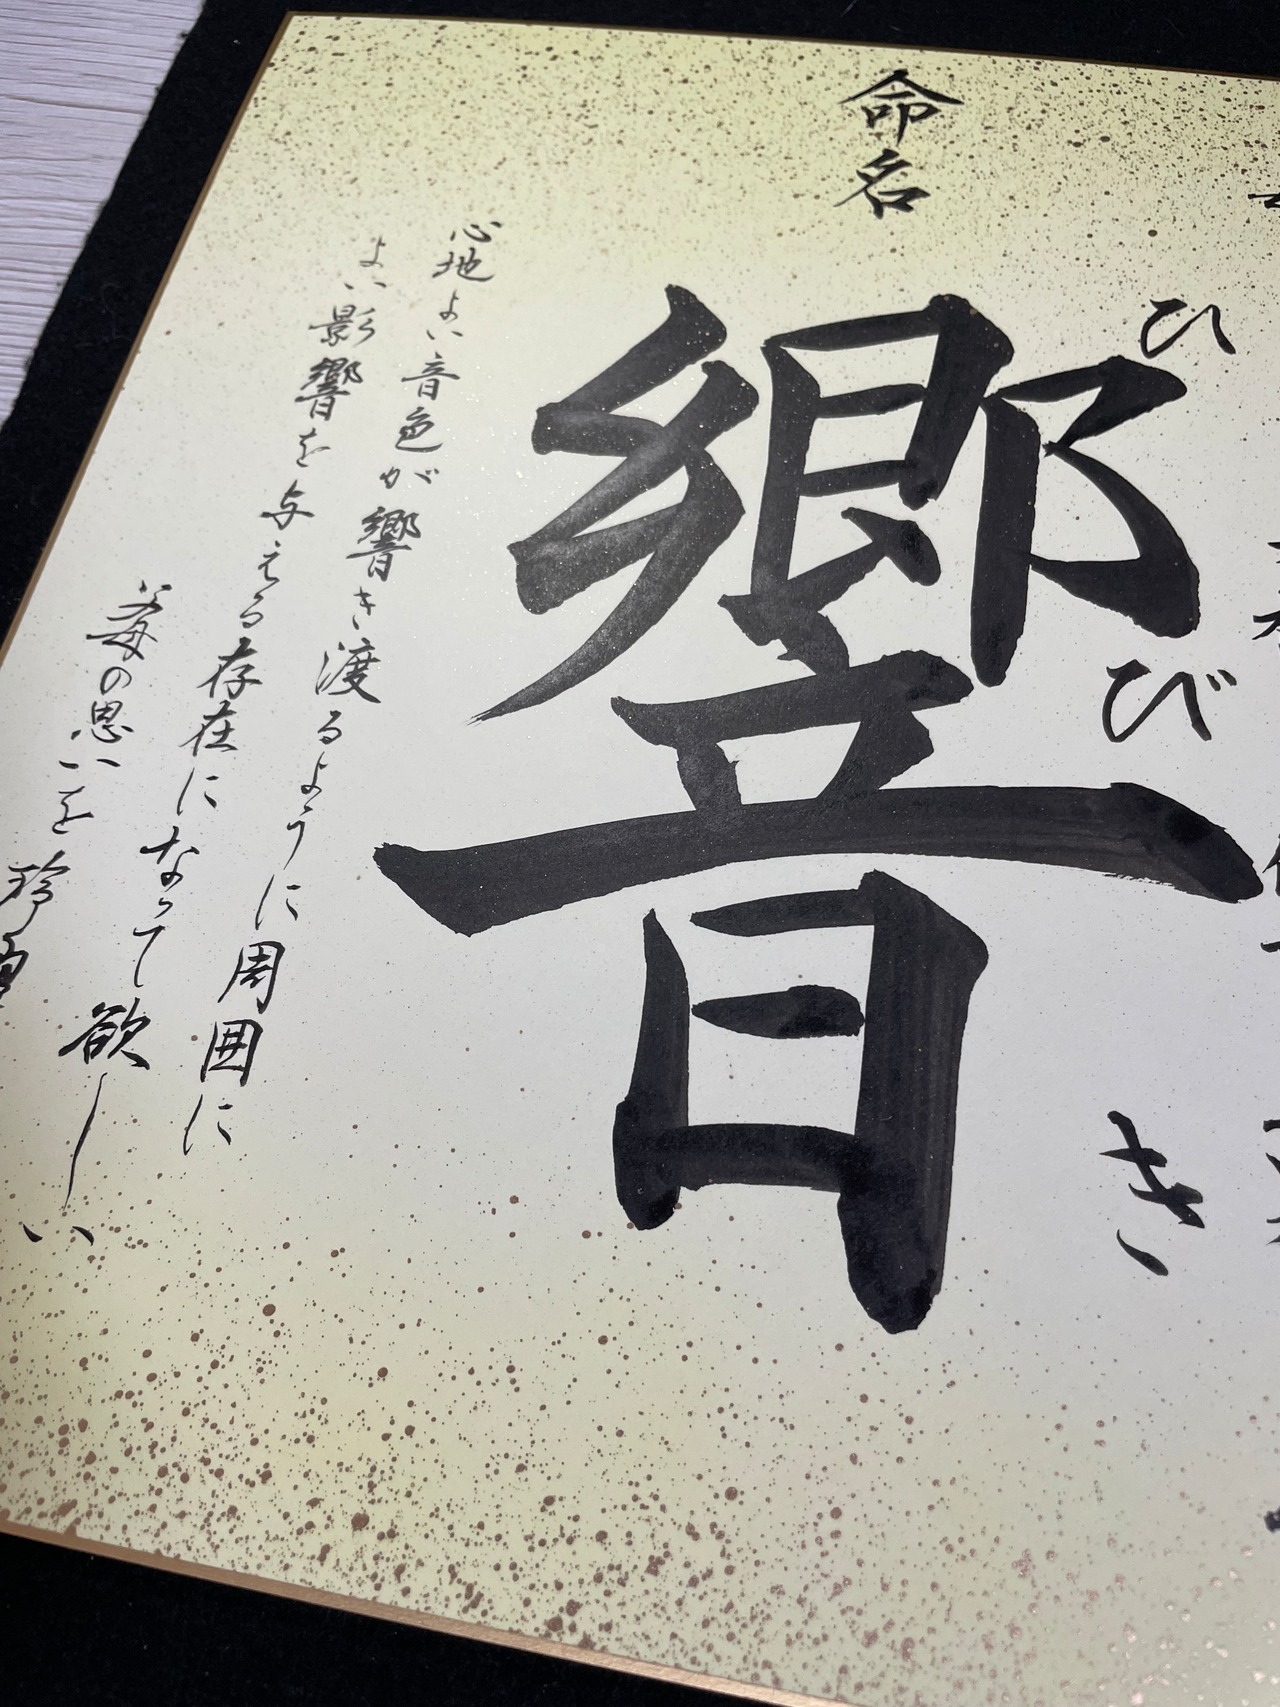 命名
ひびき
響
心地よい音色が響き渡るように周囲に
よい影響を与える存在になって欲しい
父母の思いを